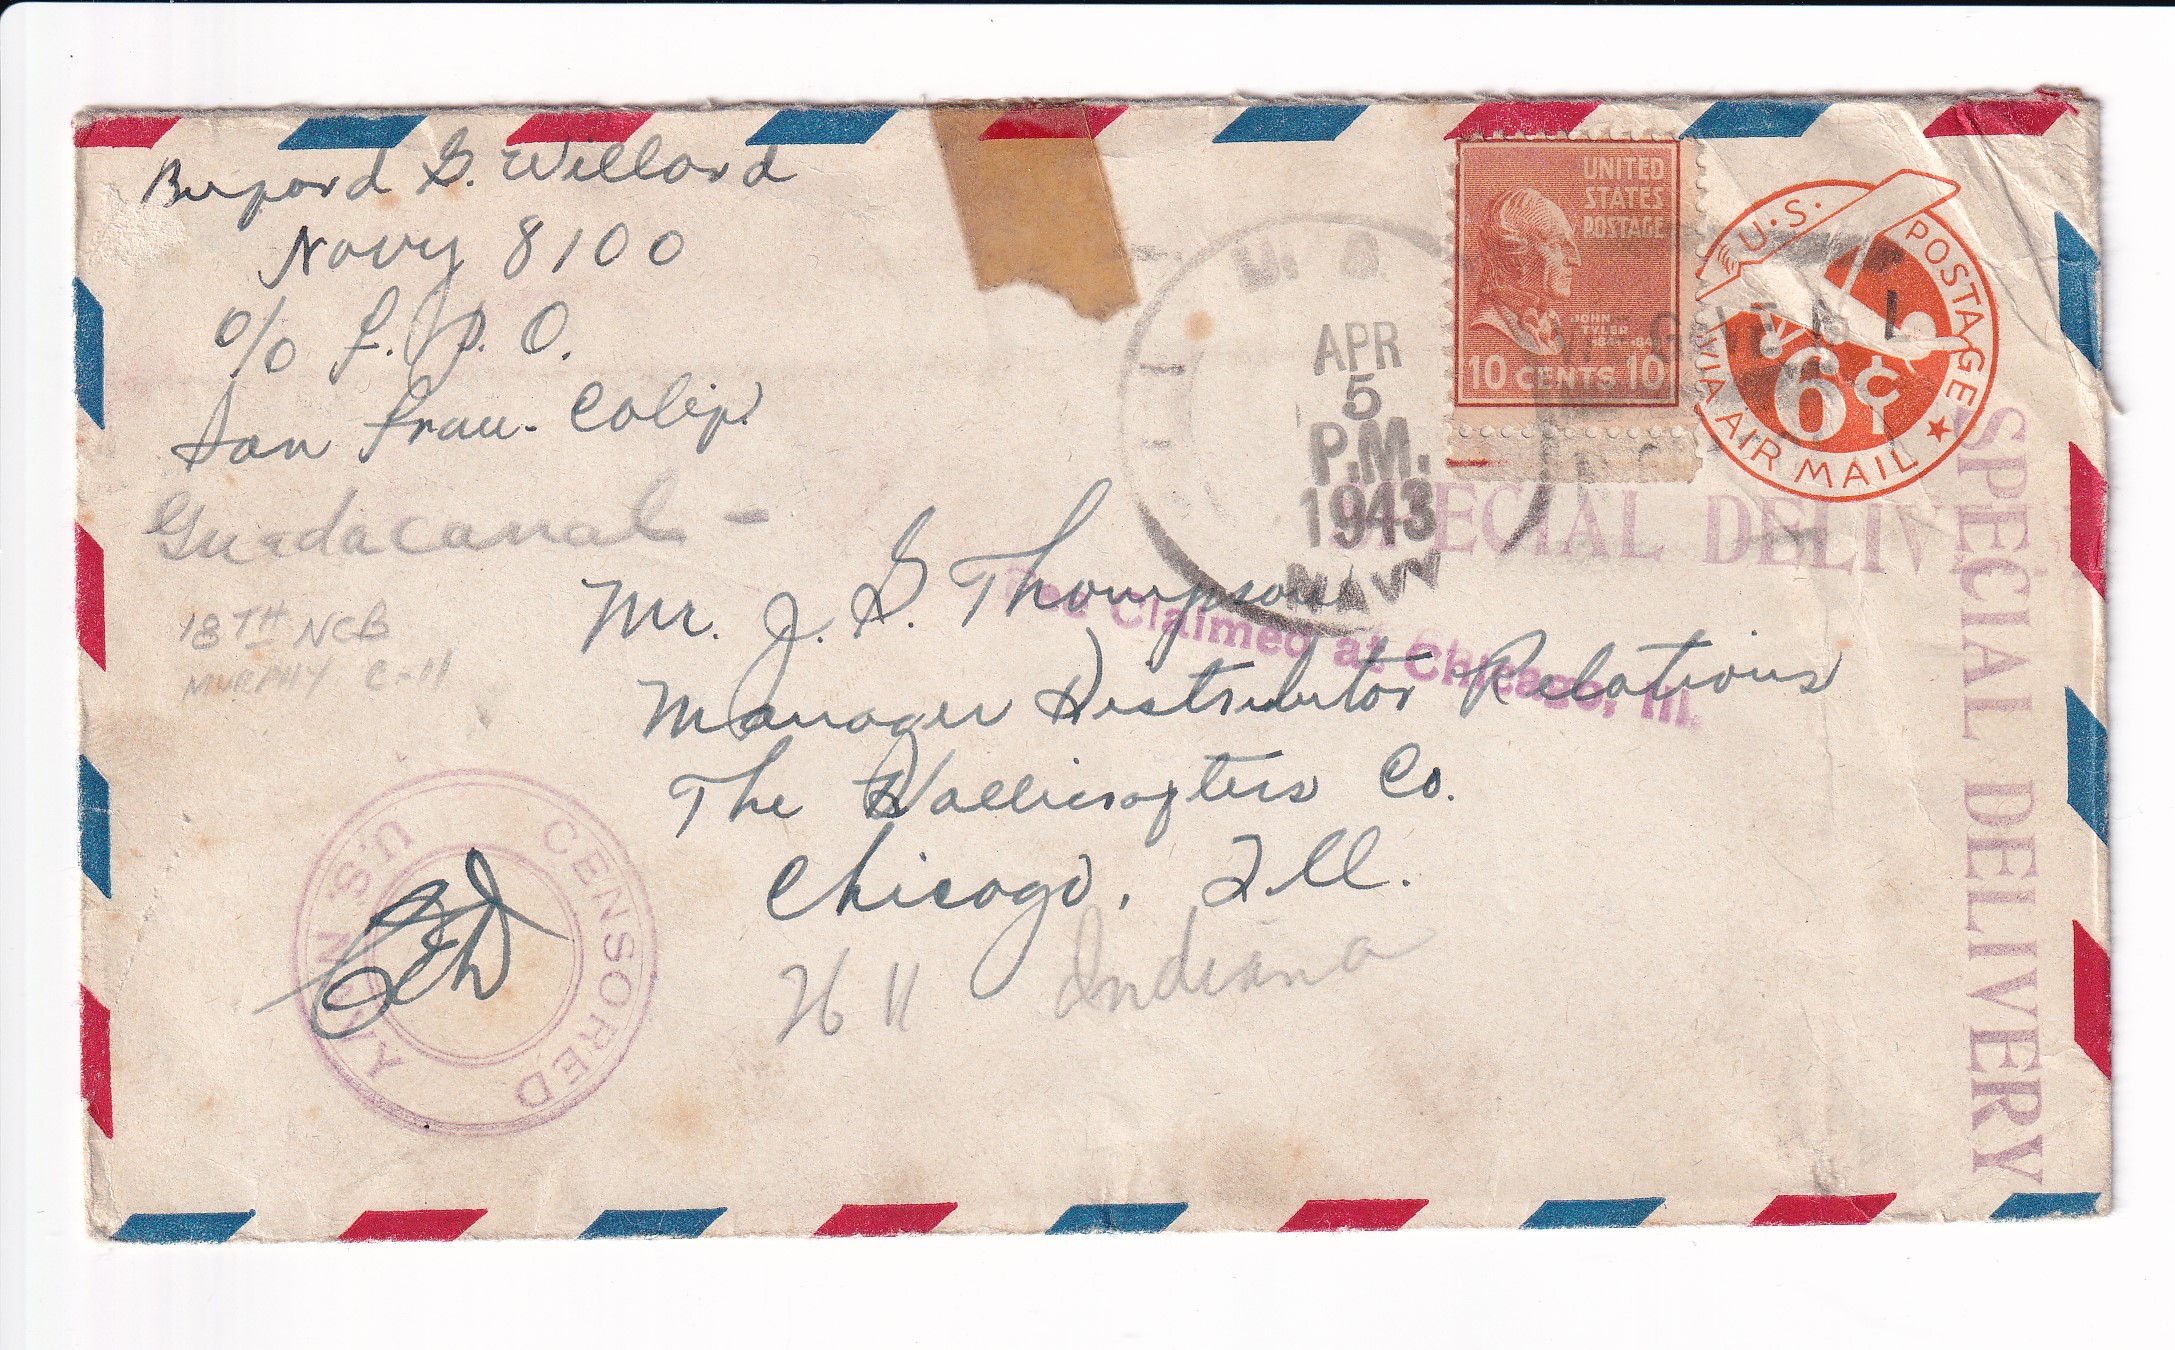 Buford G. Willard
Navy 8100
c/o F.P.O.
San Fran. Calif.
Guadacanal -
18TH NCB
MURPHY C-11
U. S.
APR
5
P.M.
1943
NAVY
UNITED
STATES
POSTAGE
JOHN
TYLER
10 CENTS 10
U.S. POSTAGE
VIA AIR MAIL
6¢
SPECIAL DELIVE
SPECIAL DELIVERY
Fee Claimed at Chicago, Ill.
Mr. J. G. Thompson
Manager Distributor Relations
The Hallicrafters Co.
Chicago, Ill.
Indiana
CENSORED
U.S. NAVY